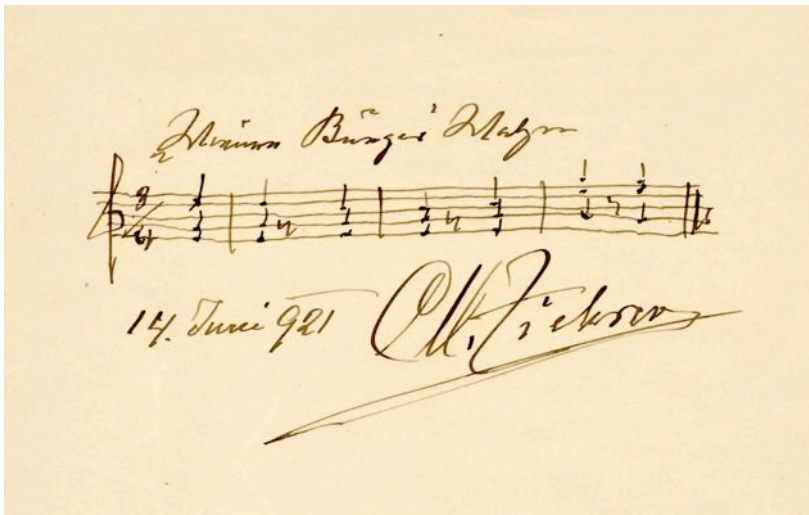 „Wiener Bürger" Walzer
3/4
14. Juni 921 CM. Ziehrer